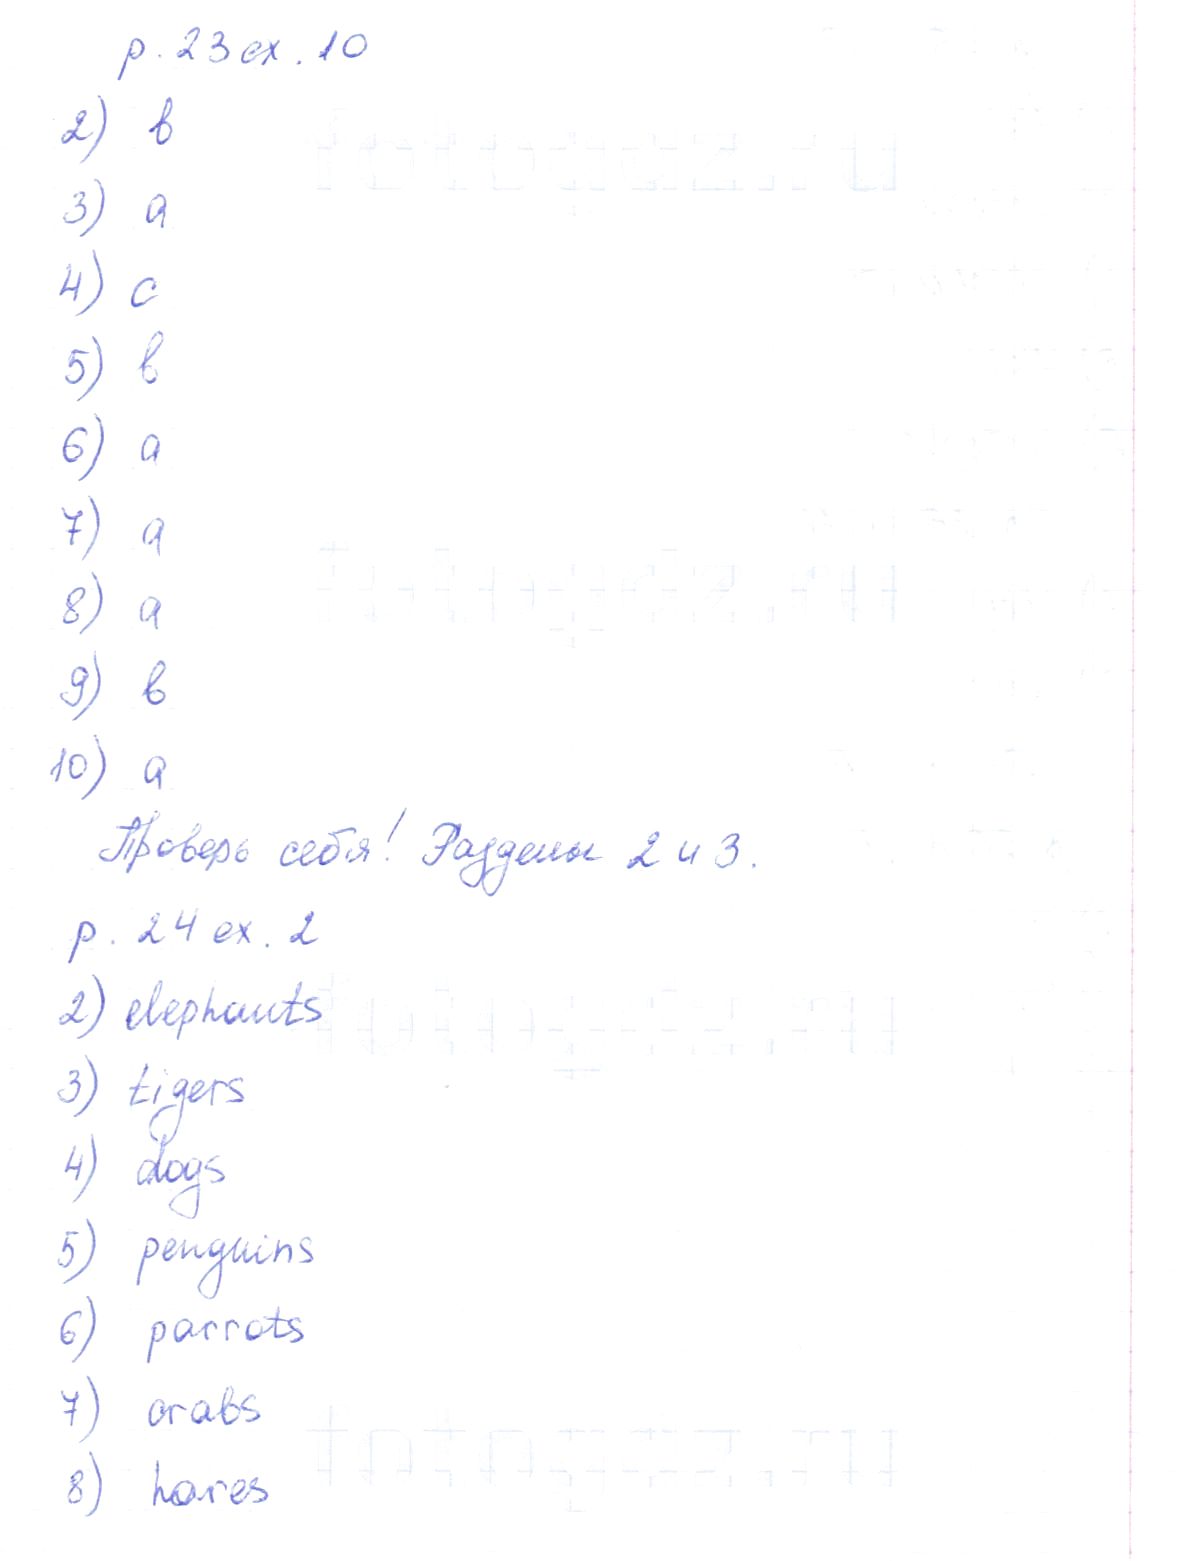 p. 23 ex. 10
2) b
3) a
4) c
5) b
6) a
7) a
8) a
9) b
10) a
Проверь себя! Разделы 2 и 3.
p. 24 ex. 2
2) elephants
3) tigers
4) dogs
5) penguins
6) parrots
7) crabs
8) hares